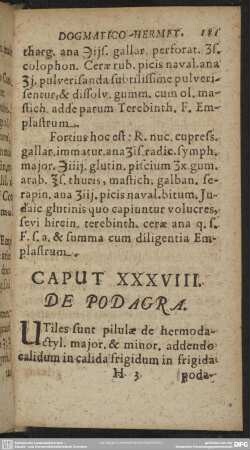 DOGMATICO-HERMET. 181
tharg. ana Ʒijſ. gallar. perforat. Ʒſ.
colophon. Ceræ rub. picis naval. ana
Ʒj. pulveriſanda ſubtiliſſime pulveri-
ſentur, & diſſolv. gumm. cum ol. ma-
ſtich. adde parum Terebinth. F. Em-
plaſtrum.
Fortius hoc eſt: R. nuc. cupreſſ.
gallar. immatur. ana Ʒiſ. radic. ſymph.
major. Ʒiiij. glutin. piſcium Ʒx. gum.
arab. Ʒſ. thuris, maſtich. galban. ſe-
rapin. ana Ʒiij. picis naval. bitum. Ju-
daic glutinis quo capiuntur volucres,
ſevi hircin. terebinth. ceræ ana q. ſ.
F. ſ. a. & ſumma cum diligentia Em-
plaſtrum.
CAPUT XXXVIII.
DE PODAGRA.
UTiles ſunt pilulæ de hermoda-
ctyl. major. & minor. addendo
calidum in calida frigidum in frigida
H 3 poda-